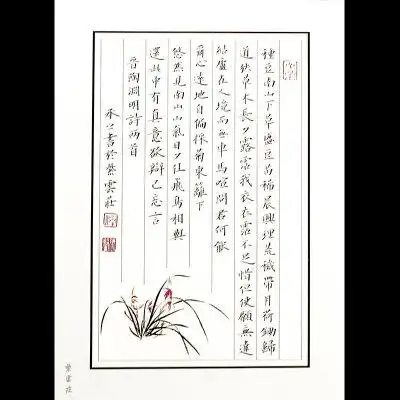 種豆南山下草盛豆苗稀晨興理荒穢帶月荷鋤歸
道狹草木長夕露霑我衣衣霑不足惜但使願無違
結廬在人境而無車馬喧問君何能
爾心遠地自偏採菊東籬下
悠然見南山山氣日夕佳飛鳥相與
還此中有真意欲辯已忘言
晉陶淵明詩兩首
承書於紫雲莊
紫雲莊